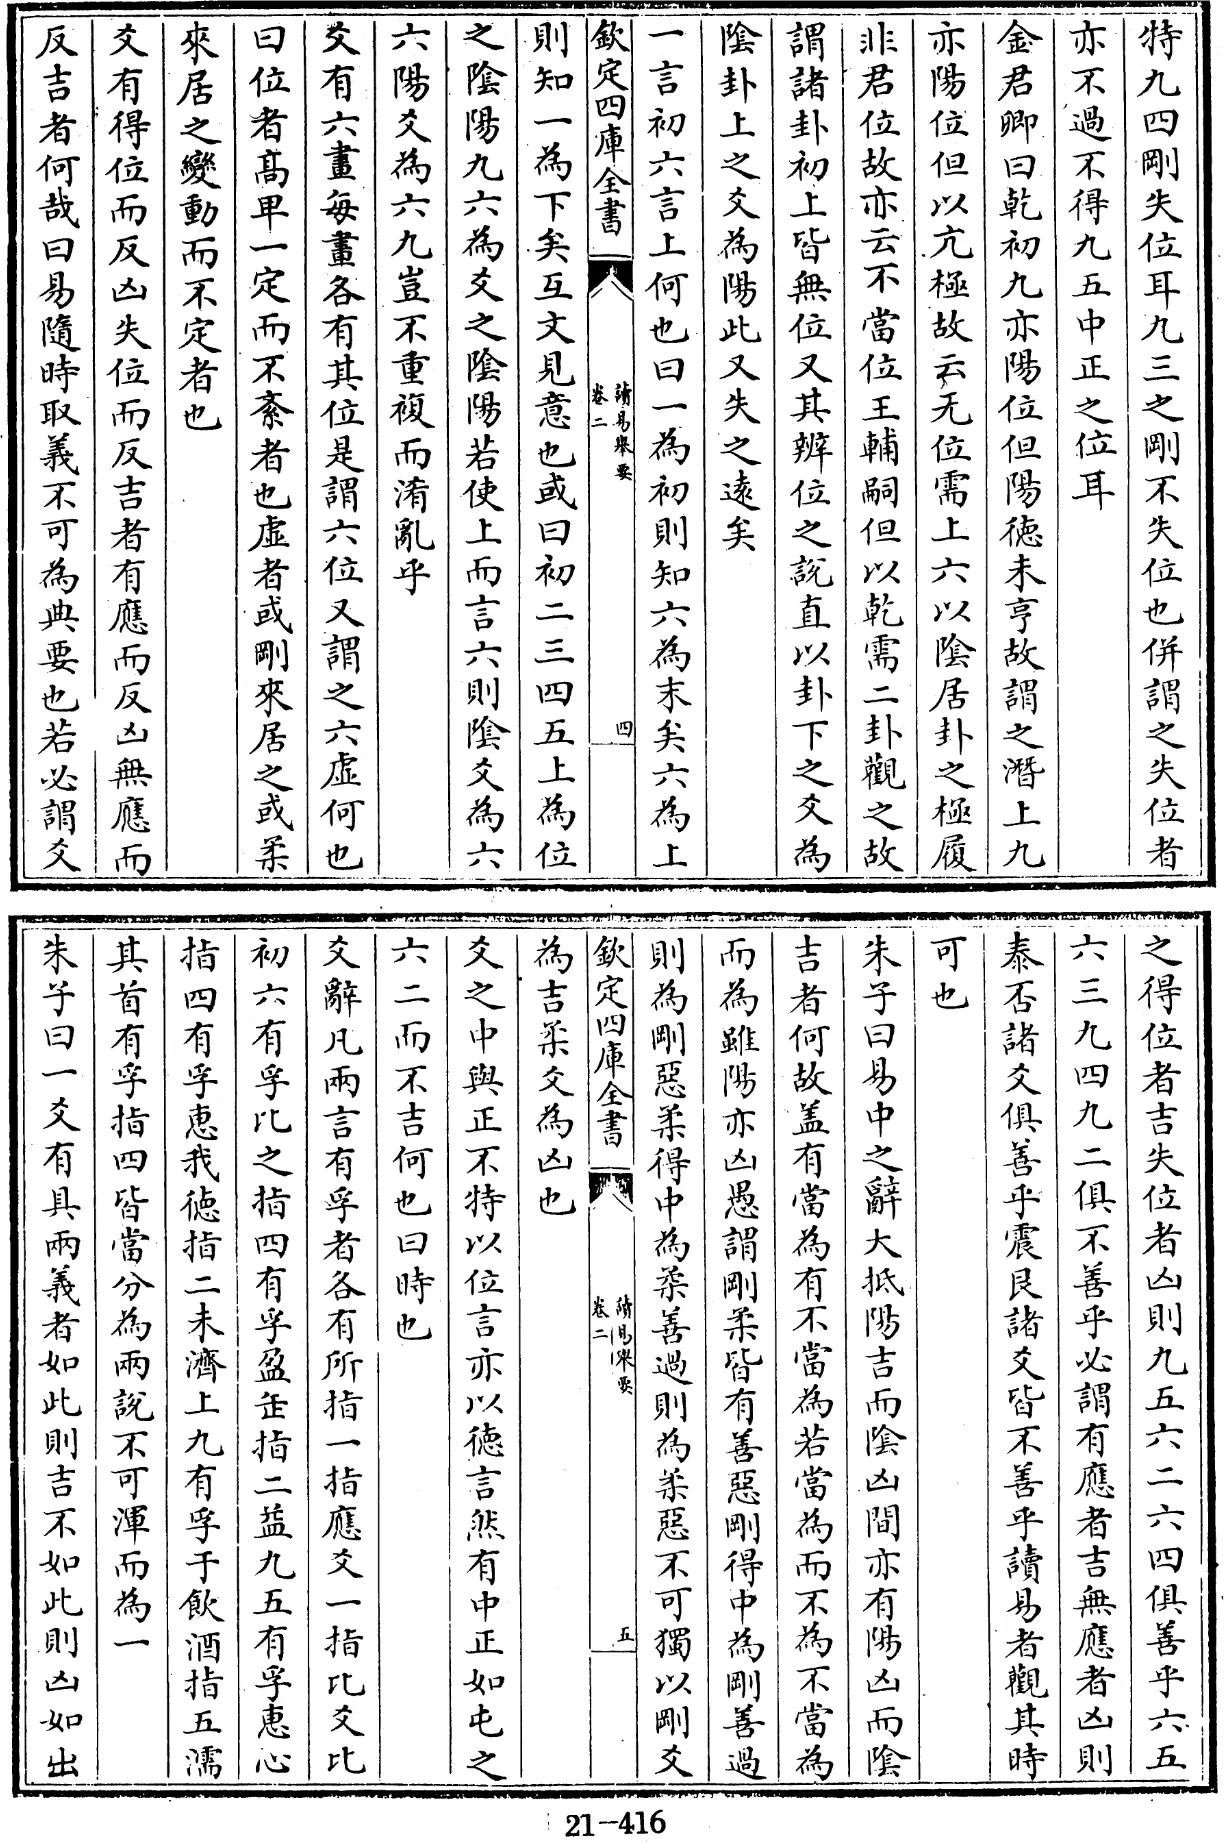 特九四剛失位耳九三之剛不失位也併謂之失位者
亦不過不得九五中正之位耳
金君卿曰乾初九亦陽位但陽徳未亨故謂之潛上九
亦陽位但以亢極故云无位需上六以陰居卦之極履
非君位故亦云不當位王輔嗣但以乾需二卦觀之故
謂諸卦初上皆無位又其辨位之說直以卦下之爻為
陰卦上之爻為陽此又失之逺矣
一言初六言上何也曰一為初則知六為末矣六為上
欽定四庫全書
讀易舉要
卷二
四
則知一為下矣互文見意也或曰初二三四五上為位
之陰陽九六為爻之陰陽若使上而言六則陰爻為六
六陽爻為六九豈不重複而淆亂乎
爻有六畫每畫各有其位是謂六位又謂之六虚何也
曰位者髙卑一定而不紊者也虚者或剛來居之或柔
來居之變動而不定者也
爻有得位而反凶失位而反吉者有應而反凶無應而
反吉者何哉曰易隨時取義不可為典要也若必謂爻
之得位者吉失位者凶則九五六二六四俱善乎六五
六三九四九二俱不善乎必謂有應者吉無應者凶則
泰否諸爻俱善乎震艮諸爻皆不善乎讀易者觀其時
可也
朱子曰易中之辭大抵陽吉而陰凶間亦有陽凶而陰
吉者何故盖有當為有不當為若當為而不為不當為
而為雖陽亦凶愚謂剛柔皆有善惡剛得中為剛善過
則為剛惡柔得中為柔善過則為柔惡不可獨以剛爻
欽定四庫全書
讀易舉要
卷二
五
為吉柔爻為凶也
爻之中與正不特以位言亦以徳言然有中正如屯之
六二而不吉何也曰時也
爻辭凡兩言有孚者各有所指一指應爻一指比爻比
初六有孚比之指四有孚盈缶指二益九五有孚惠心
指四有孚惠我徳指二未濟上九有孚于飲酒指五濡
其首有孚指四皆當分為兩說不可渾而為一
朱子曰一爻有具兩義者如此則吉不如此則凶如出
21-416